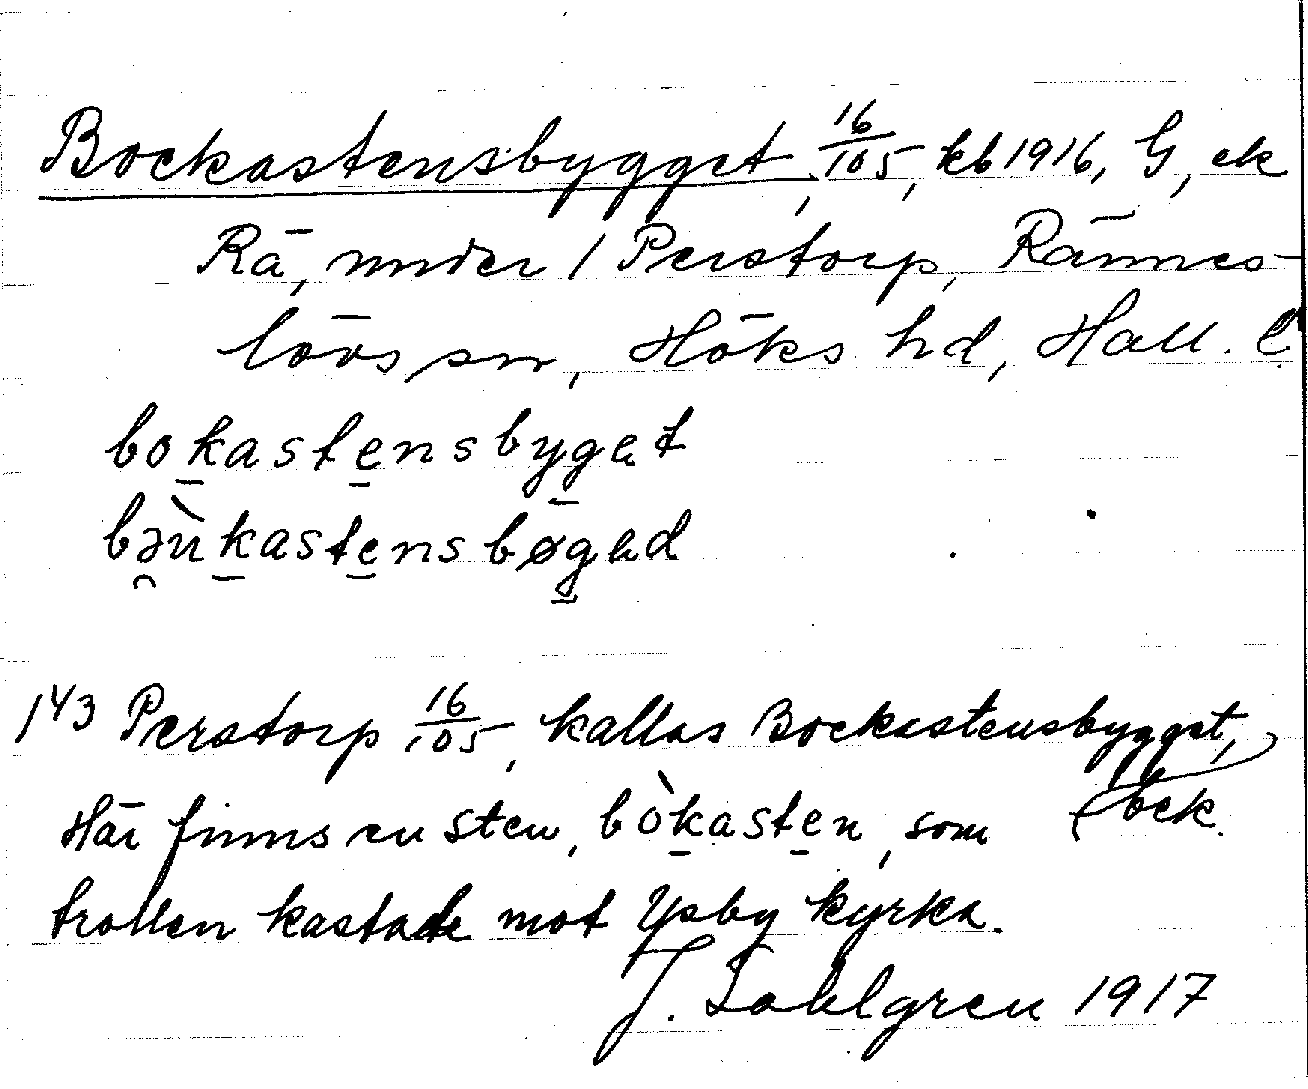 Bockastensbygget, 16/105, kb 1916, G, ek
Rä, under 1 Perstorp, Rännes-
lövs sn, Höks hd, Hall. l
bokastensbyget
bə̯ùkastensbøgəd
143 Perstorp 16/105, kallas Bockastensbygget,
Här finns en sten, bòkasten, som bock.
trollen kastade mot Ysby kyrka.
J. Sahlgren 1917